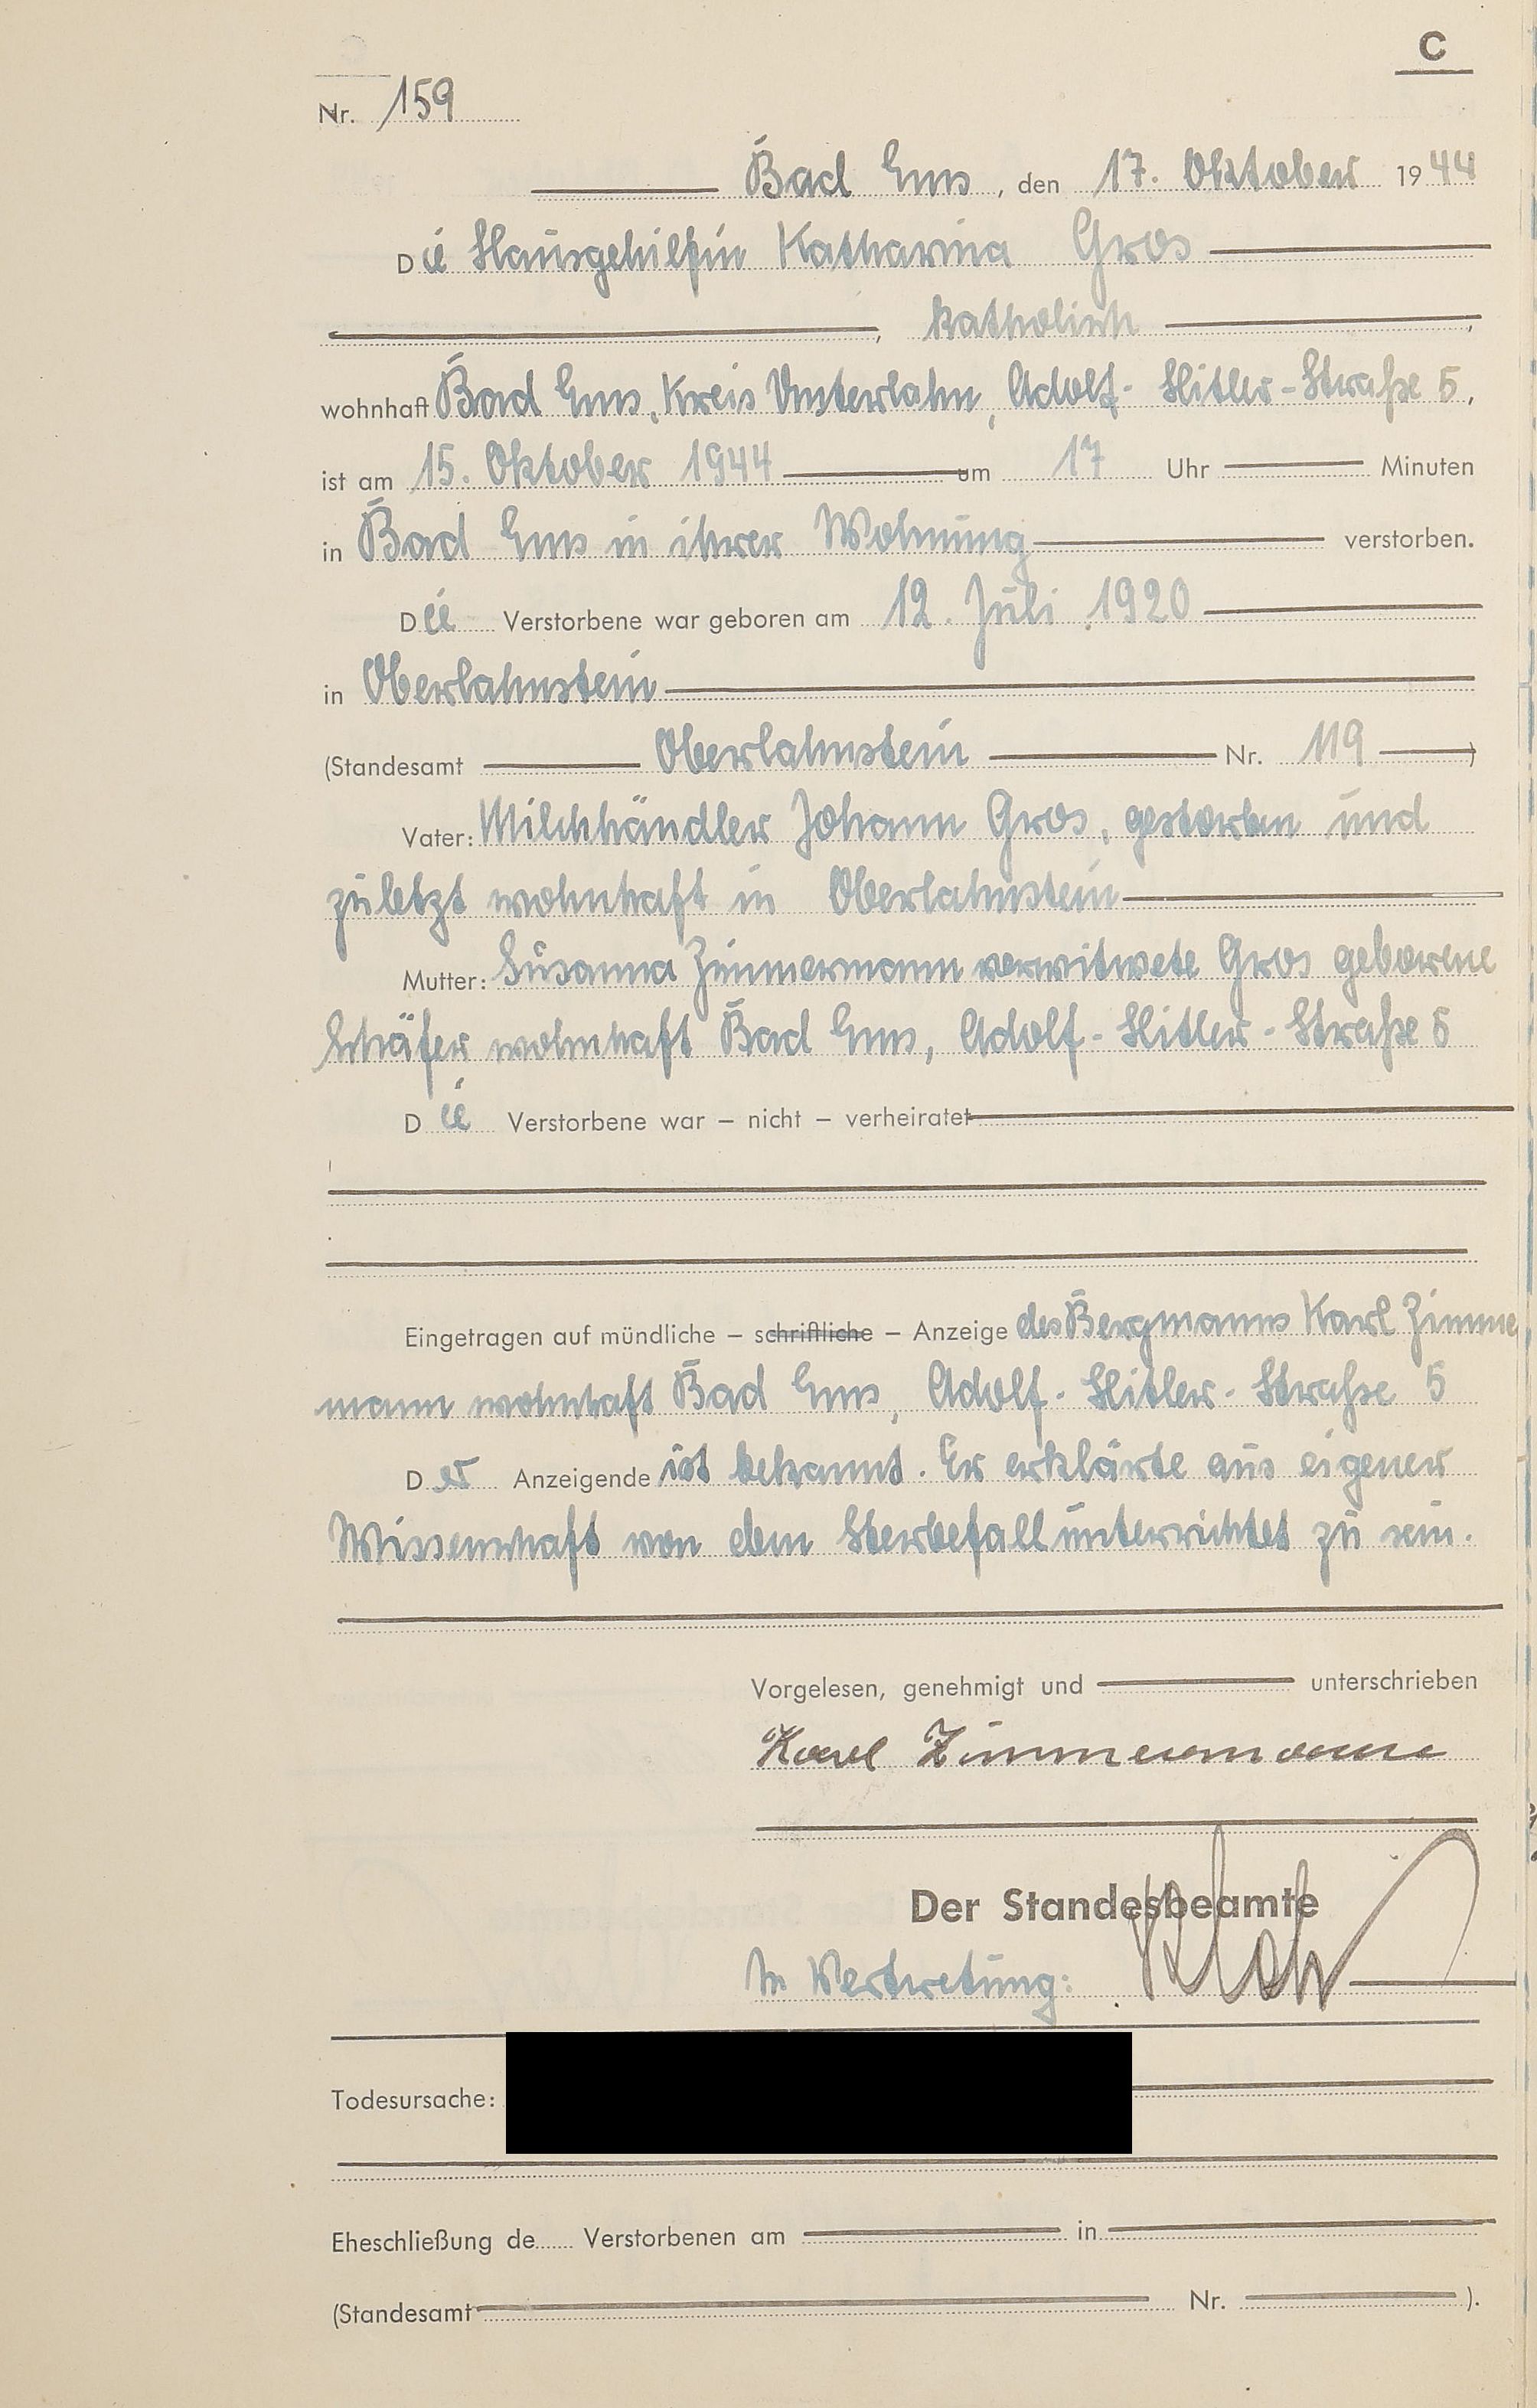 C
Nr. 159
Bad Ems, den 17. Oktober 1944
Die Hausgehilfin Katharina Gros
, katholisch ,
wohnhaft Bad Ems, Kreis Unterlahn, Adolf-Hitler-Straße 5,
ist am 15. Oktober 1944 um 17 Uhr Minuten
in Bad Ems in ihrer Wohnung verstorben.
Die Verstorbene war geboren am 12. Juli 1920
in Oberlahnstein
(Standesamt Oberlahnstein Nr. 119 )
Vater: Milchhändler Johann Gros, gestorben und
zuletzt wohnhaft in Oberlahnstein
Mutter: Susanna Zimmermann verwitwete Gros geborene
Schäfer wohnhaft Bad Ems, Adolf-Hitler-Straße 5
Die Verstorbene war – nicht – verheiratet
Eingetragen auf mündliche – schriftliche – Anzeige des Bergmanns Karl Zimmer
mann wohnhaft Bad Ems, Adolf-Hitler-Straße 5
Der Anzeigende ist bekannt. Er erklärte aus eigener
Wissenschaft von dem Sterbefall unterrichtet zu sein.
Vorgelesen, genehmigt und unterschrieben
Karl Zimmermann
Der Standesbeamte
In Vertretung:
Todesursache:
Eheschließung de Verstorbenen am in
(Standesamt Nr. ).